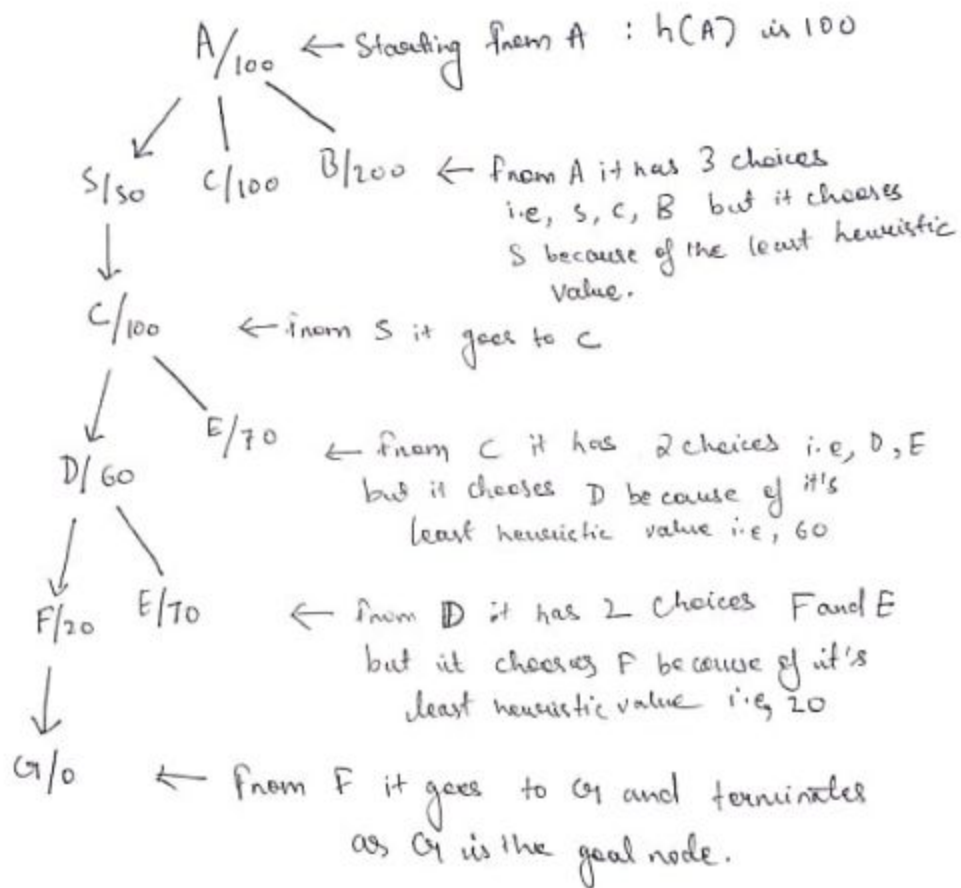 A/100 ← Starting from A : h(A) is 100
S/50 C/100 B/200 ← from A it has 3 choices
i.e, S, C, B but it chooses
S because of the least heuristic
value.
C/100 ← from S it goes to C
D/60 E/70 ← from C it has 2 choices i.e, D, E
but it chooses D because of it's
least heuristic value i.e, 60
F/20 E/70 ← from D it has 2 choices F and E
but it chooses F because of it's
least heuristic value i.e, 20
G/0 ← from F it goes to G and terminates
as G is the goal node.